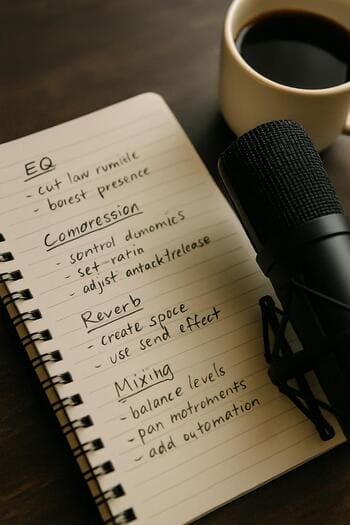 EQ
- cut law rumisle
- boiest presence
Comoression
- sontrol dunomics
- set ratin
- adjist antack/release
Reverb
- create spoce
- use send effect
Mixing
- balance levels
- pan motroments
- add outomation